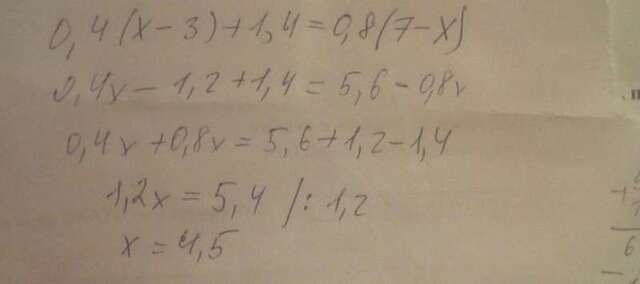 0,4(x-3)+1,4=0,8(7-x)
0,4x-1,2+1,4=5,6-0,8x
0,4x+0,8x=5,6+1,2-1,4
1,2x=5,4 /:1,2
x=4,5
6